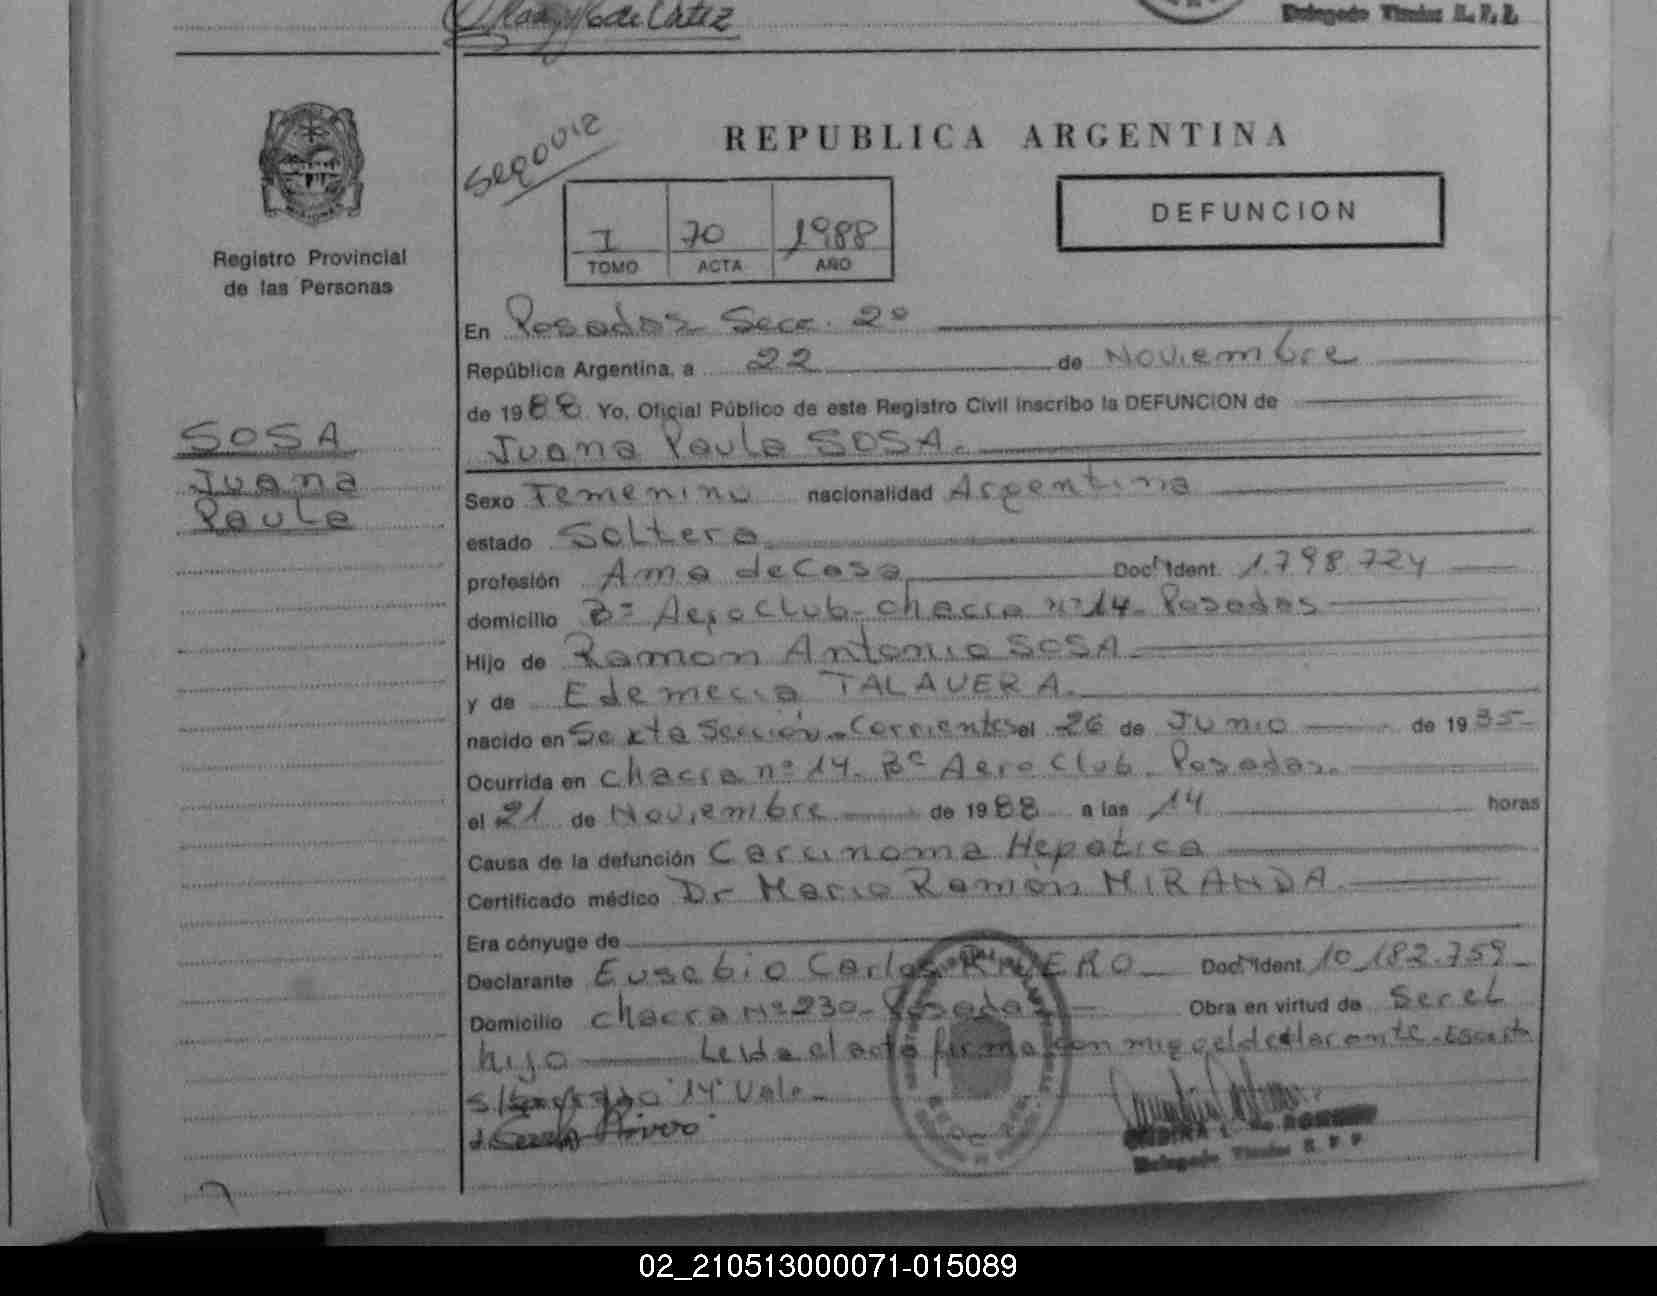 Delegado Titular R. P. P.
REPUBLICA ARGENTINA
DEFUNCION
I 70 1988
TOMO ACTA AÑO
Registro Provincial
de las Personas
SOSA
Juana
Paula
En Posadas Secc. 2º
República Argentina, a 22 de Noviembre
de 1988 Yo, Oficial Público de este Registro Civil inscribo la DEFUNCION de
Juana Paula SOSA.
Sexo Femenino nacionalidad Argentina
estado Soltera
profesión Ama de Casa Doc. Ident. 1.798.724
domicilio Bº Aero Club- chacra nº 14- Posadas
Hijo de Ramon Antonio SOSA
y de Edemecia TALAVERA.
nacido en Sexta Sección- Corrientes el 26 de Junio de 1935
Ocurrida en chacra nº 14. Bº Aero Club. Posadas.
el 21 de Noviembre de 1988 a las 14 horas
Causa de la defunción Carcinoma Hepatica
Certificado médico Dr Mario Ramon MIRANDA.
Era cónyuge de
Declarante Eusebio Carlos RIVERO Doc. Ident. 10.182.759
Domicilio chacra Nº 230- Posadas Obra en virtud de Ser el
hijo Leida el acta firma con migo el declarante.
"14" Vale.
Rivero
Delegado Titular R. P. P.
02_210513000071-015089